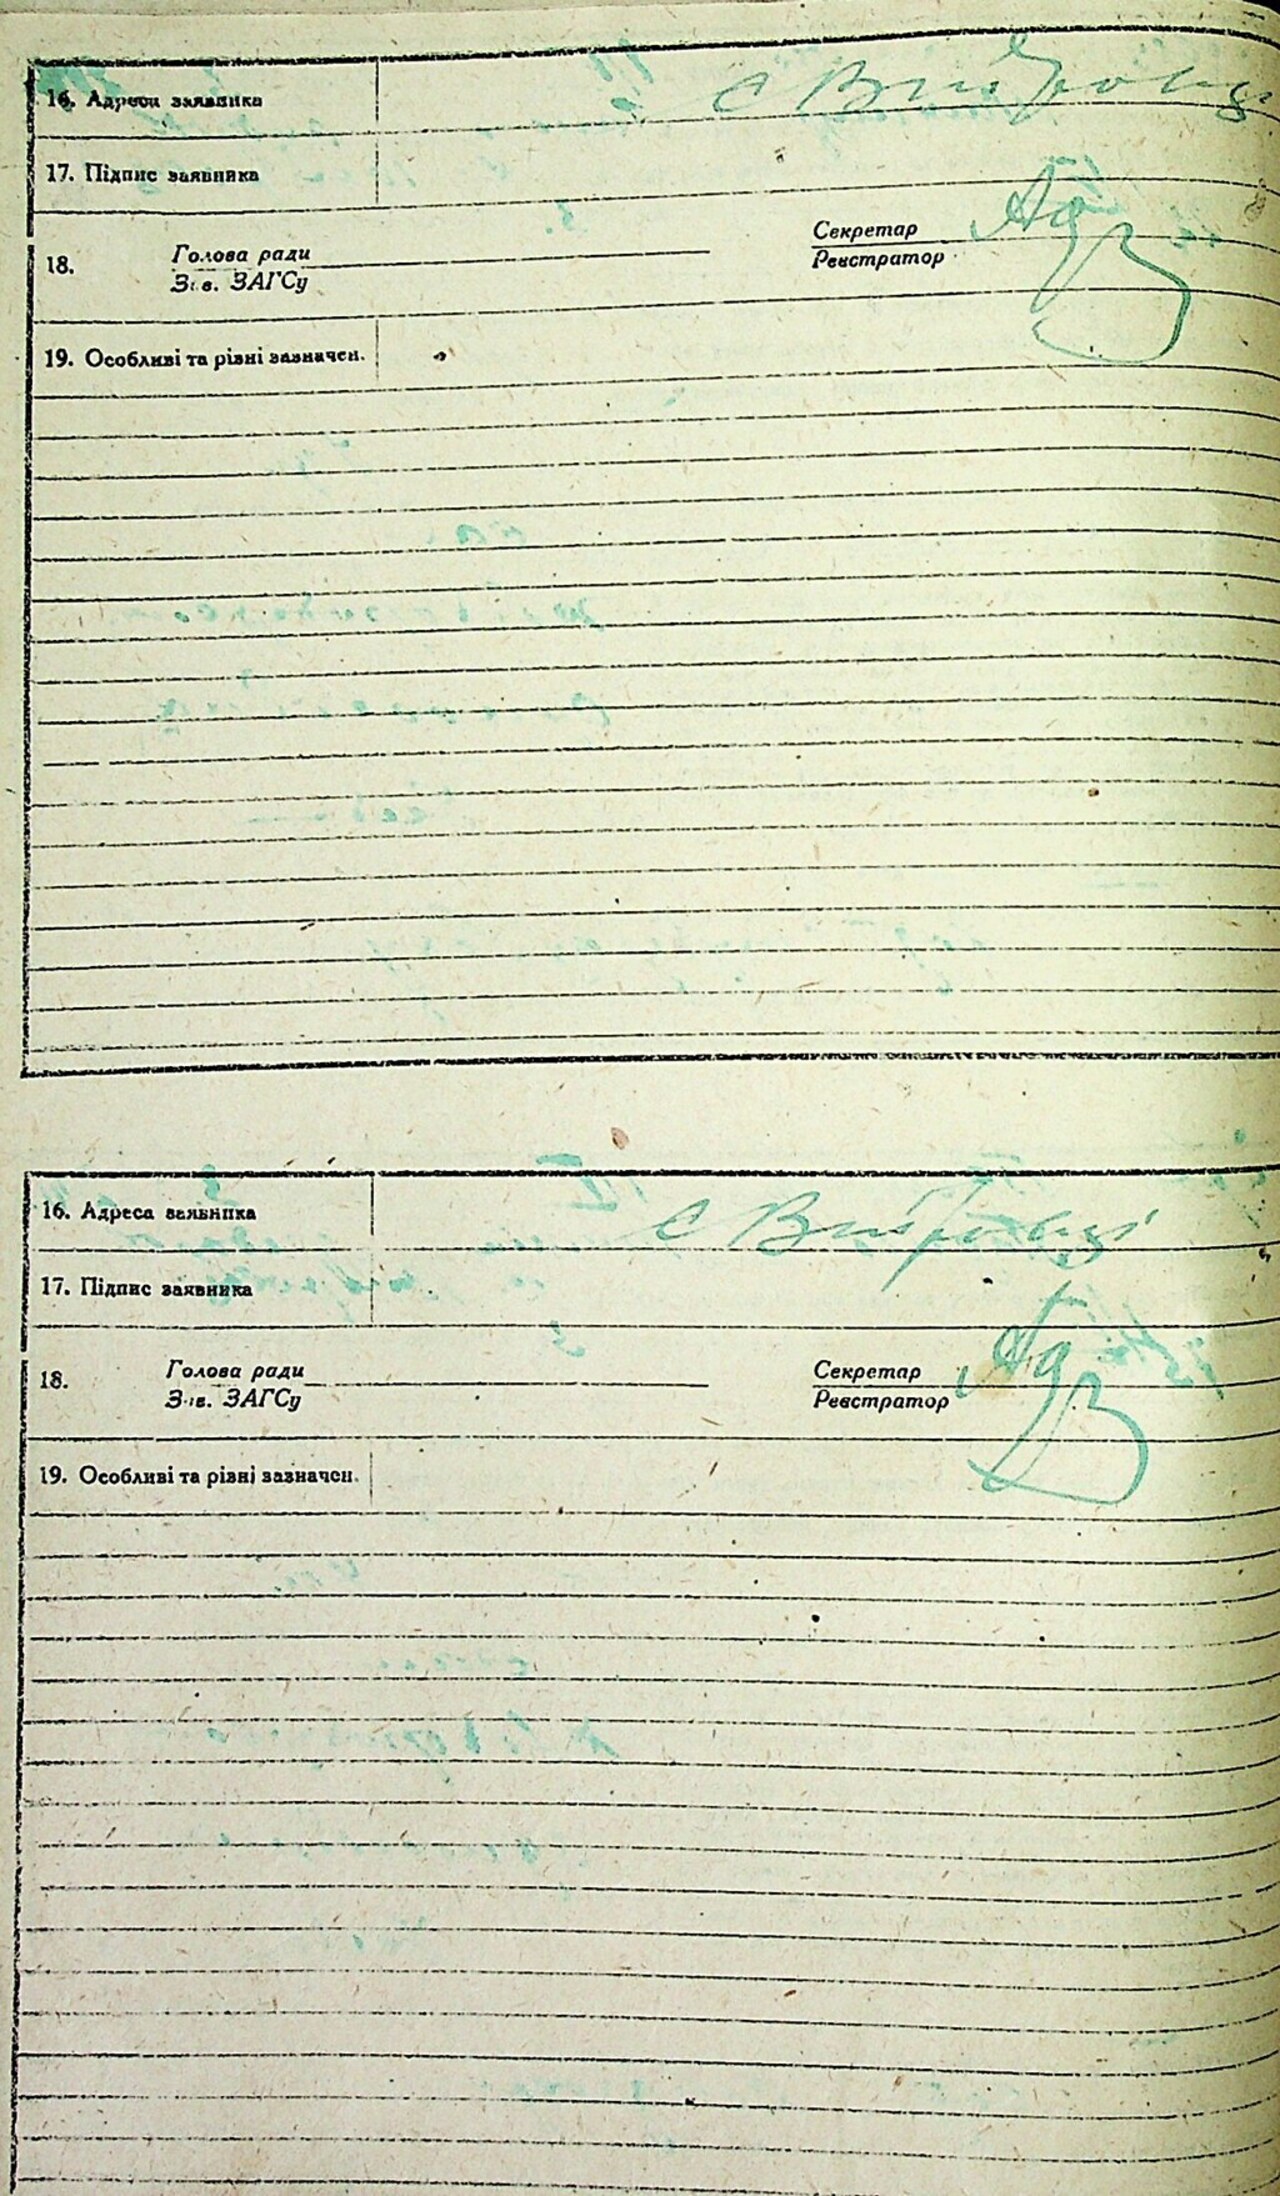 16. Адреса заявника
с Вибровці
17. Підпис заявника
18. Голова ради
Зав. ЗАГСу
Секретар
Реєстратор
19. Особливі та різні зазначен.
16. Адреса заявника
с Вибровці
17. Підпис заявника
18. Голова ради
Зав. ЗАГСу
Секретар
Реєстратор
19. Особливі та різні зазначен.